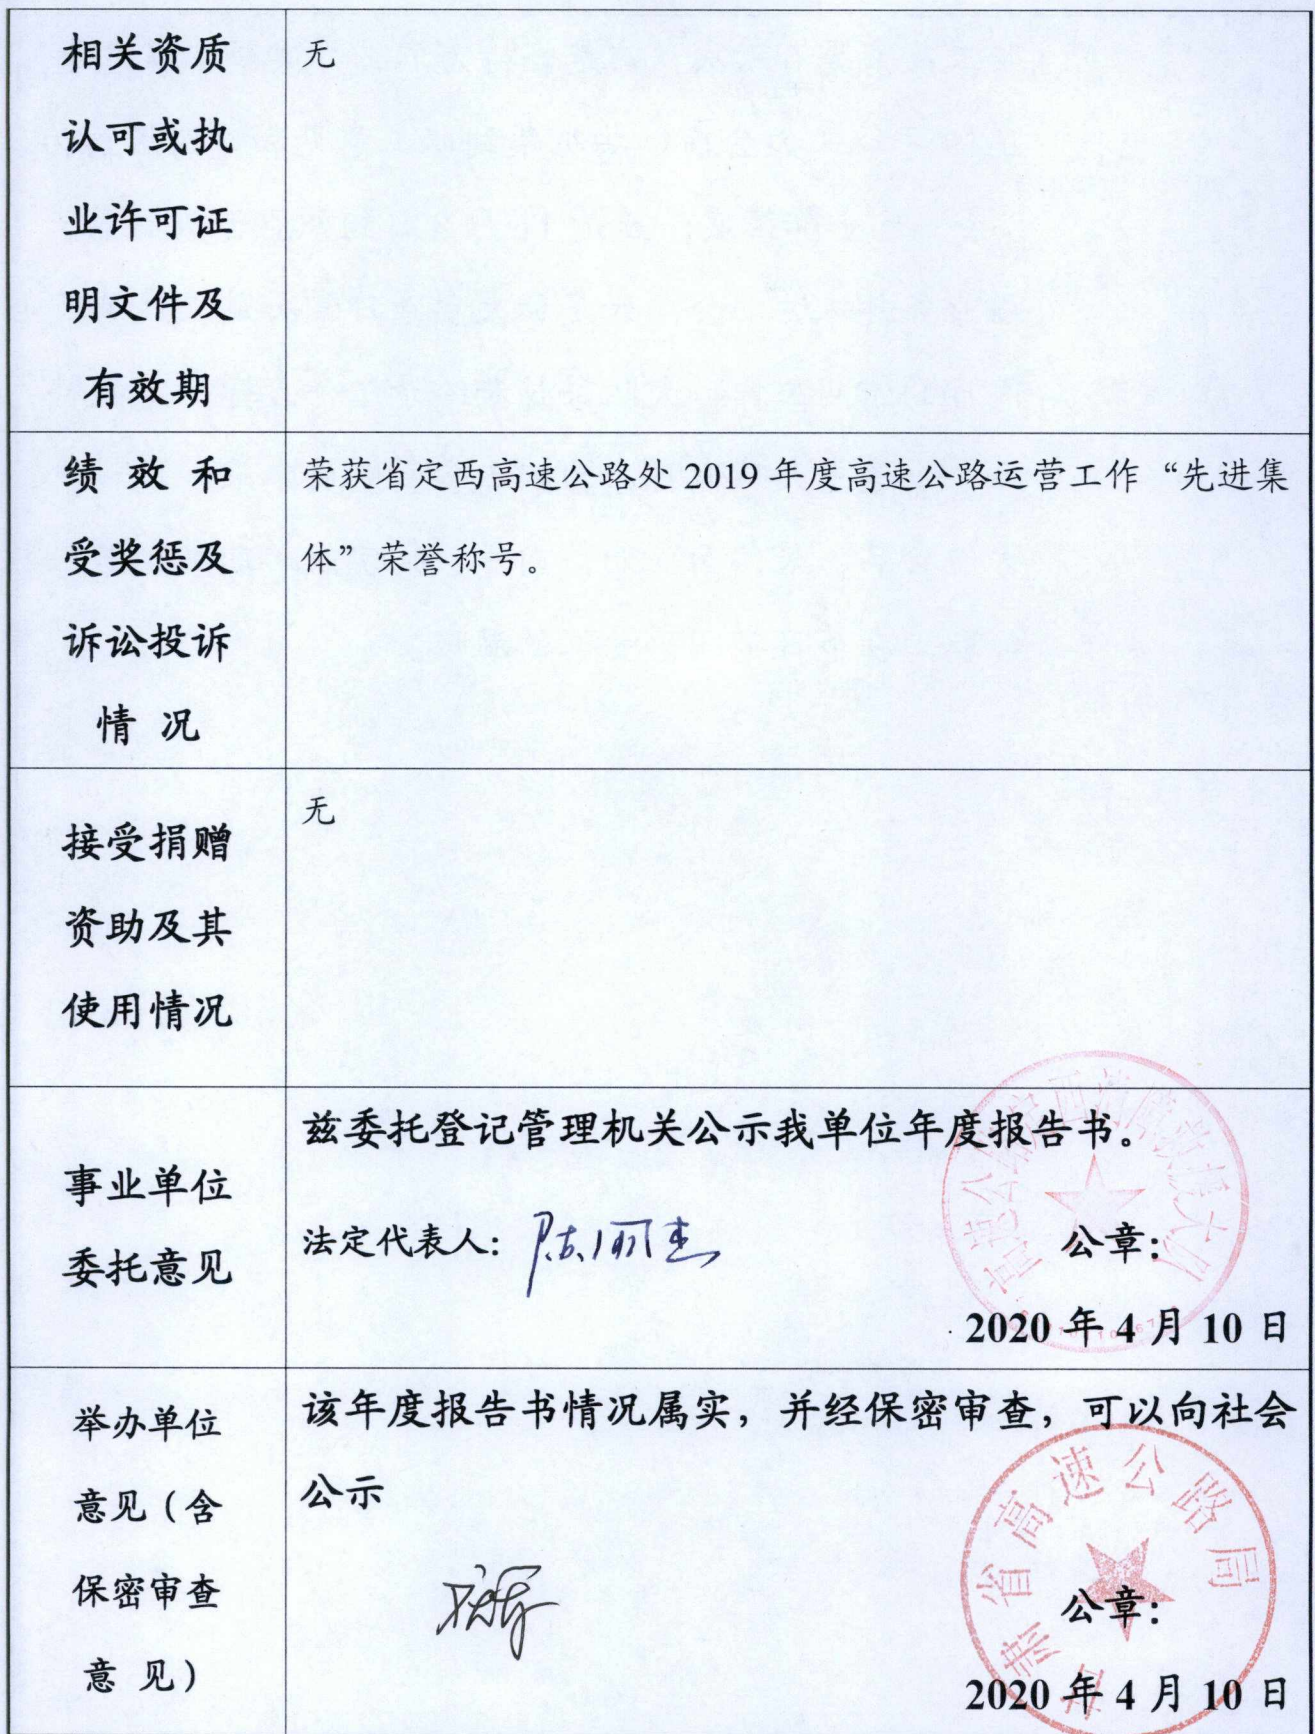 相关资质
认可或执
业许可证
明文件及
有效期
无
绩 效 和
受奖惩及
诉讼投诉
情 况
荣获省定西高速公路处 2019 年度高速公路运营工作“先进集
体”荣誉称号。
接受捐赠
资助及其
使用情况
无
事业单位
委托意见
兹委托登记管理机关公示我单位年度报告书。
法定代表人:
公章:
2020 年 4 月 10 日
举办单位
意见（含
保密审查
意 见）
该年度报告书情况属实，并经保密审查，可以向社会
公示
甘肃省高速公路局
公章:
2020 年 4 月 10 日